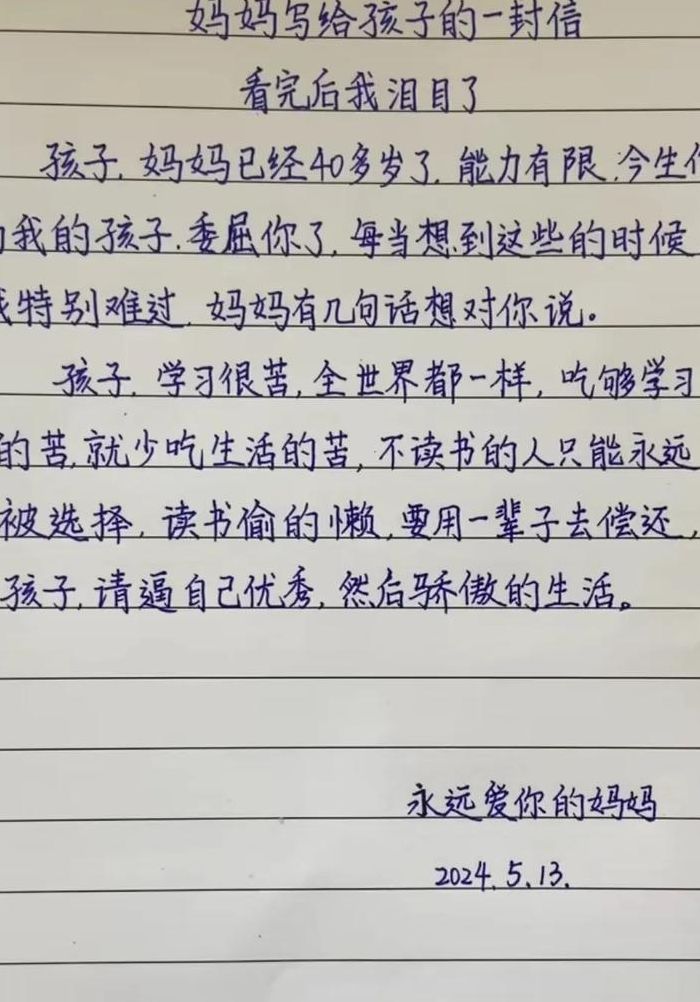 妈妈写给孩子的一封信
看完后我泪目了
孩子,妈妈已经40多岁了,能力有限,今生作
为我的孩子,委屈你了,每当想到这些的时候
我特别难过,妈妈有几句话想对你说。
孩子,学习很苦,全世界都一样,吃够学习
的苦,就少吃生活的苦,不读书的人只能永远
被选择,读书偷的懒,要用一辈子去偿还,
孩子,请逼自己优秀,然后骄傲的生活。
永远爱你的妈妈
2024.5.13.